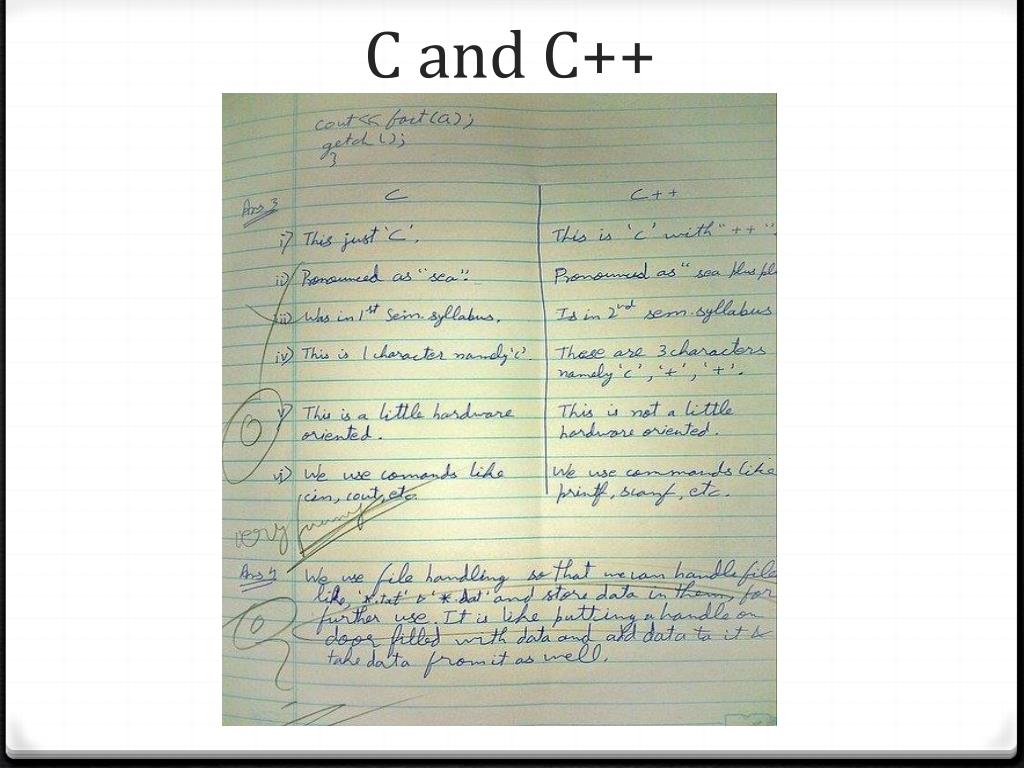 C and C++
cout<< fact(a);
getch();
}
Ans 3
C
C++
i) This just 'C'.
This is 'C' with "++".
ii) Pronounced as "sea".
Pronounced as "sea plus pl
iii) Was in 1st Sem. syllabus.
Is in 2nd sem. syllabus
iv) This is 1 character namely 'c'.
These are 3 characters
namely 'c', '+', '+'.
v) This is a little hardware
oriented.
This is not a little
hardware oriented.
vi) We use comands like
cin, cout, etc.
We use commands like
printf, scanf, etc.
very funny
Ans 4
We use file handling so that we can handle file
like, '*.txt' & '*.dat' and store data in them, for
further use. It is like putting a handle on
door filled with data and add data to it &
take data from it as well.
0
0